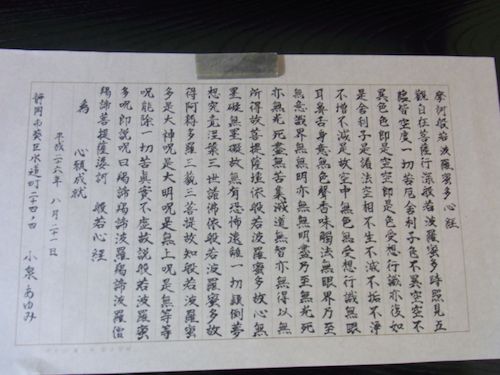 摩訶般若波羅蜜多心経
觀自在菩薩行深般若波羅蜜多時照見五
蘊皆空度一切苦厄舎利子色不異空空不
異色色即是空空即是色受想行識亦復如
是舎利子是諸法空相不生不滅不垢不浄
不増不減是故空中無色無受想行識無眼
耳鼻舌身意無色聲香味觸法無眼界乃至
無意識界無無明亦無無明盡乃至無老死
亦無老死盡無苦集滅道無智亦無得以無
所得故菩提薩埵依般若波羅蜜多故心無
罣礙無罣礙故無有恐怖遠離一切顛倒夢
想究竟涅槃三世諸佛依般若波羅蜜多故
得阿耨多羅三藐三菩提故知般若波羅蜜
多是大神呪是大明呪是無上呪是無等等
呪能除一切苦真實不虚故説般若波羅蜜
多呪即説呪曰羯諦羯諦波羅羯諦波羅僧
羯諦菩提薩婆訶 般若心経
為 心願成就
平成二十六年 八月二十一日
静岡市葵区水道町二十四 四 小泉あゆみ